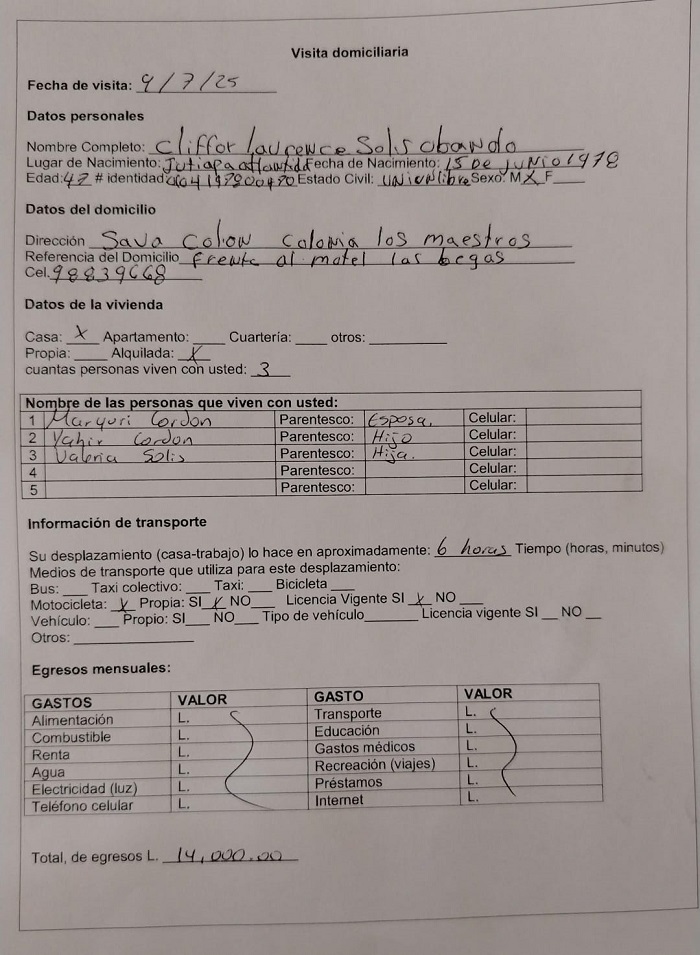 Visita domiciliaria
Fecha de visita: 9/7/25
Datos personales
Nombre Completo: Cliffor Laurence Solis Obando
Lugar de Nacimiento: Jutiapa atlantida Fecha de Nacimiento: 15 De juNio 1978
Edad: 47 # identidad Estado Civil: UNioN libre Sexo: M X F
Datos del domicilio
Dirección Sava Colon Colonia los maestros
Referencia del Domicilio frente al motel las begas
Cel. 98839668
Datos de la vivienda
Casa: X Apartamento: ____ Cuartería: ____ otros: ____
Propia: ____ Alquilada: X
cuantas personas viven con usted: 3
Nombre de las personas que viven con usted:
1 Maryuri Cordon Parentesco: Esposa. Celular:
2 Yahir Cordon Parentesco: Hijo Celular:
3 Valeria Solis Parentesco: Hija. Celular:
4 Parentesco: Celular:
5 Parentesco: Celular:
Información de transporte
Su desplazamiento (casa-trabajo) lo hace en aproximadamente: 6 horas Tiempo (horas, minutos)
Medios de transporte que utiliza para este desplazamiento:
Bus: ___ Taxi colectivo: ___ Taxi: ___ Bicicleta ___
Motocicleta: X Propia: SI X NO___ Licencia Vigente SI X NO ___
Vehículo: ___ Propio: SI___ NO___ Tipo de vehículo_______ Licencia vigente SI __ NO __
Otros: ____
Egresos mensuales:
GASTOS VALOR GASTO VALOR
Alimentación L. Transporte L.
Combustible L. Educación L.
Renta L. Gastos médicos L.
Agua L. Recreación (viajes) L.
Electricidad (luz) L. Préstamos L.
Teléfono celular L. Internet L.
Total, de egresos L. 14,000.00